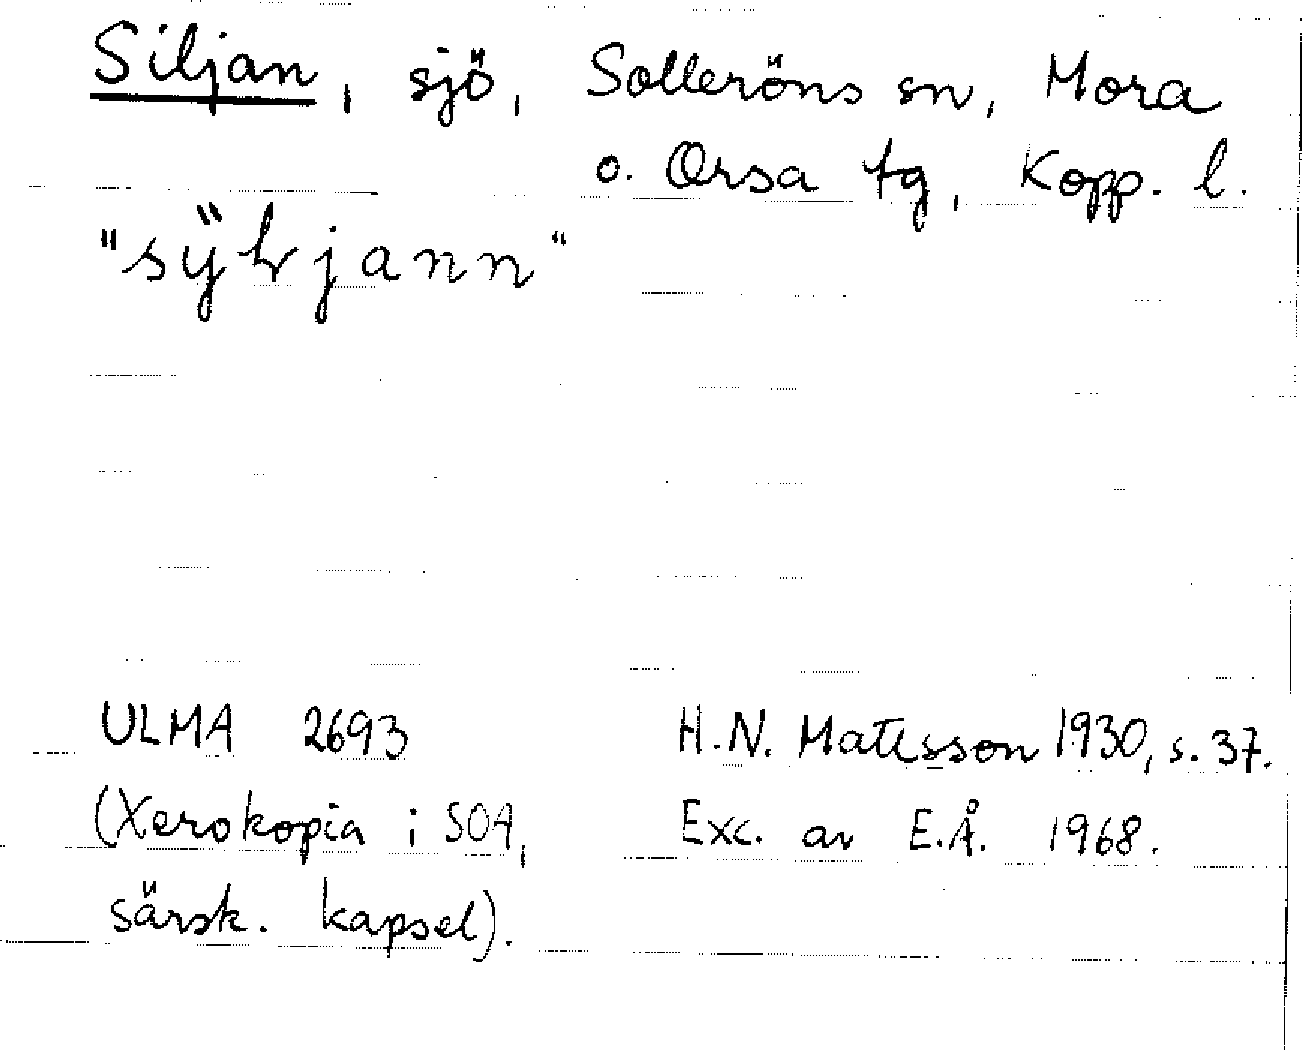 Siljan, sjö, Solleröns sn, Mora
o. Orsa tg, Kopp. l.
"sÿlrjann"
ULMA 2693
H.N. Matsson 1930, s. 37.
(Xerokopia i SOA,
Exc. av E.Å. 1968.
särsk. kapsel).